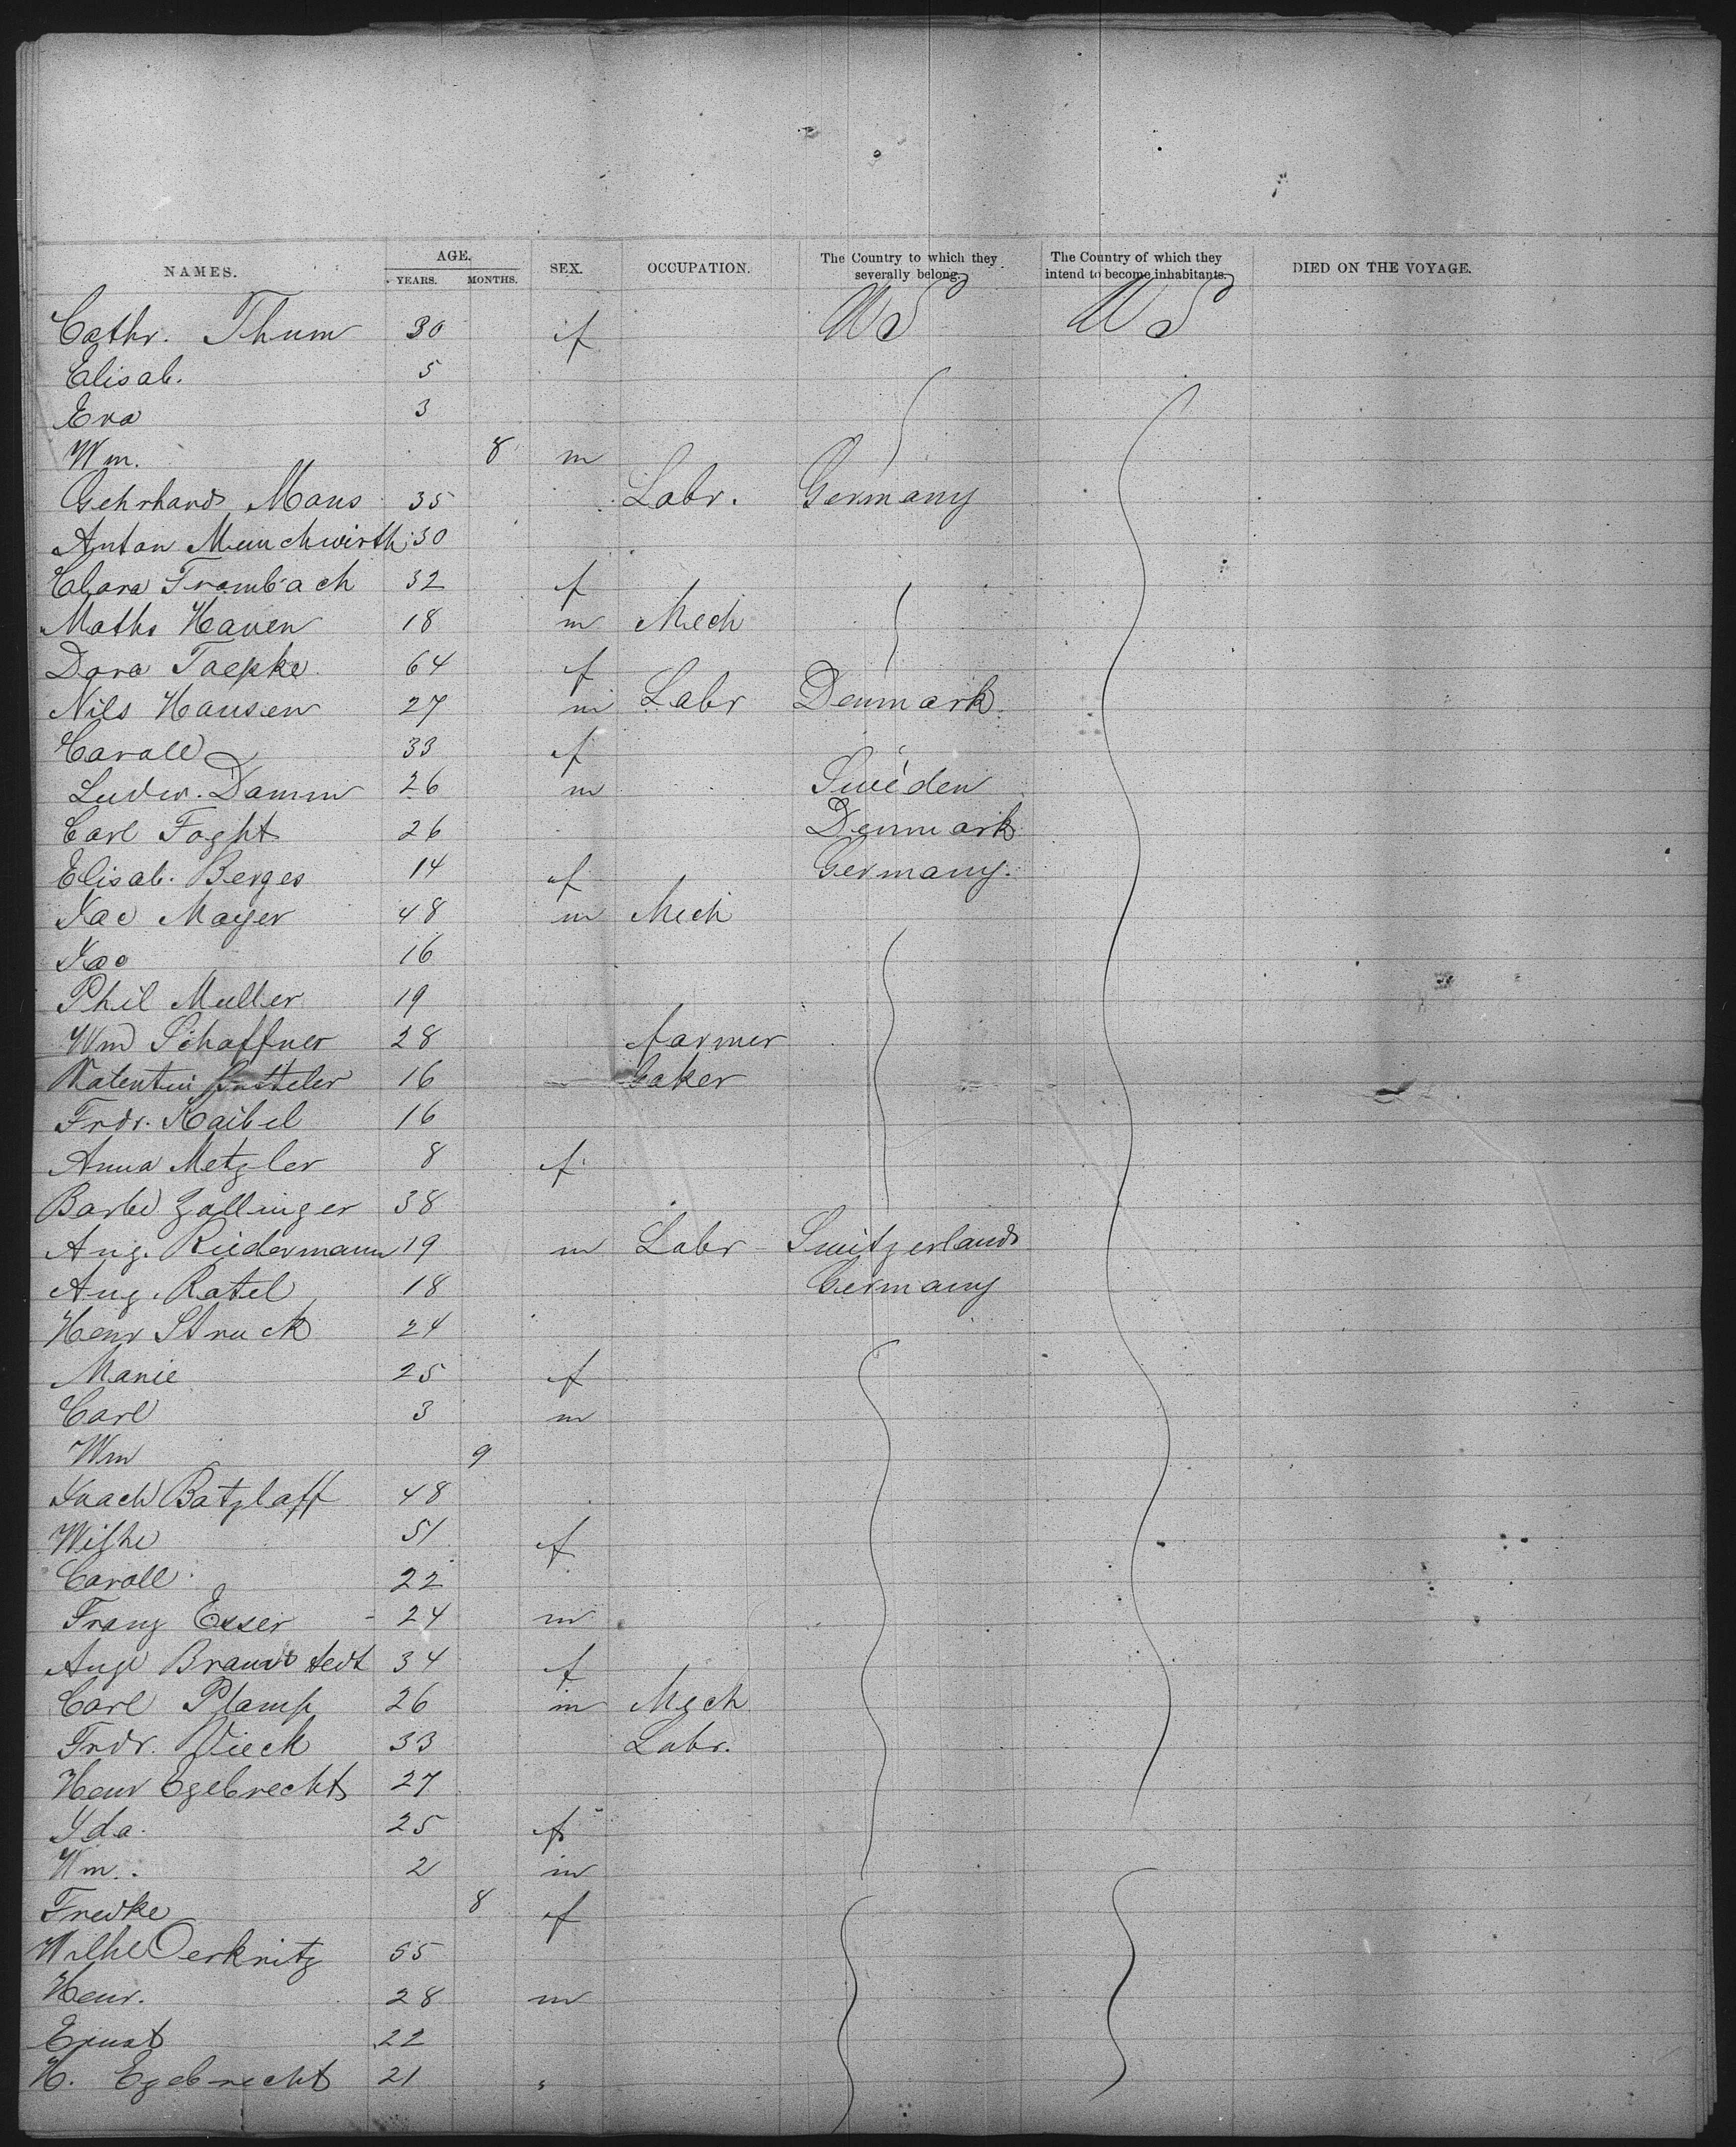 NAMES. AGE. YEARS. MONTHS. SEX. OCCUPATION. The Country to which they severally belong. The Country of which they intend to become inhabitants. DIED ON THE VOYAGE.
Cathr. Thum 30 f US US
Elisab. 5
Eva 3
Wm. 8 m
Gehrhard Maus 35 Labr. Germany
Anton Munchwirth 30
Clara Trambach 32 f
Maths Hauen 18 m Mech
Dora Taepke 64 f
Nils Hansen 27 m Labr Denmark
Caroll 33 f
Ludw. Damm 26 m Sweden
Carl Foght 26 Denmark
Elisab. Berges 14 f Germany.
Jac Mayer 48 m Mech
Jac 16
Phil Muller 19
Wm Schaffner 28 farmer
Valentin 16 baker
Frdr. Kaibel 16
Anna Metzler 8 f
Barbe Zollinger 38
Aug. Riedermann 19 m Labr Switzerland
Aug. Ratel 18 Germany
Henr Struck 24
Marie 25 f
Carl 3 m
Wm 9
Joach Batzlaff 48
Wilhe 51 f
Caroll 22
Franz Esser 24 m
Auge Brandstedt 34 f
Carl Plamp 26 m Mech
Frdr. Vieck 33 Labr.
Henr Egebrecht 27
Ida. 25 f
Wm. 2 m
Fredke 8 f
Wilhe Oerknitz 55
Henr. 28 m
Ernst 22
H. Egebrecht 21 "